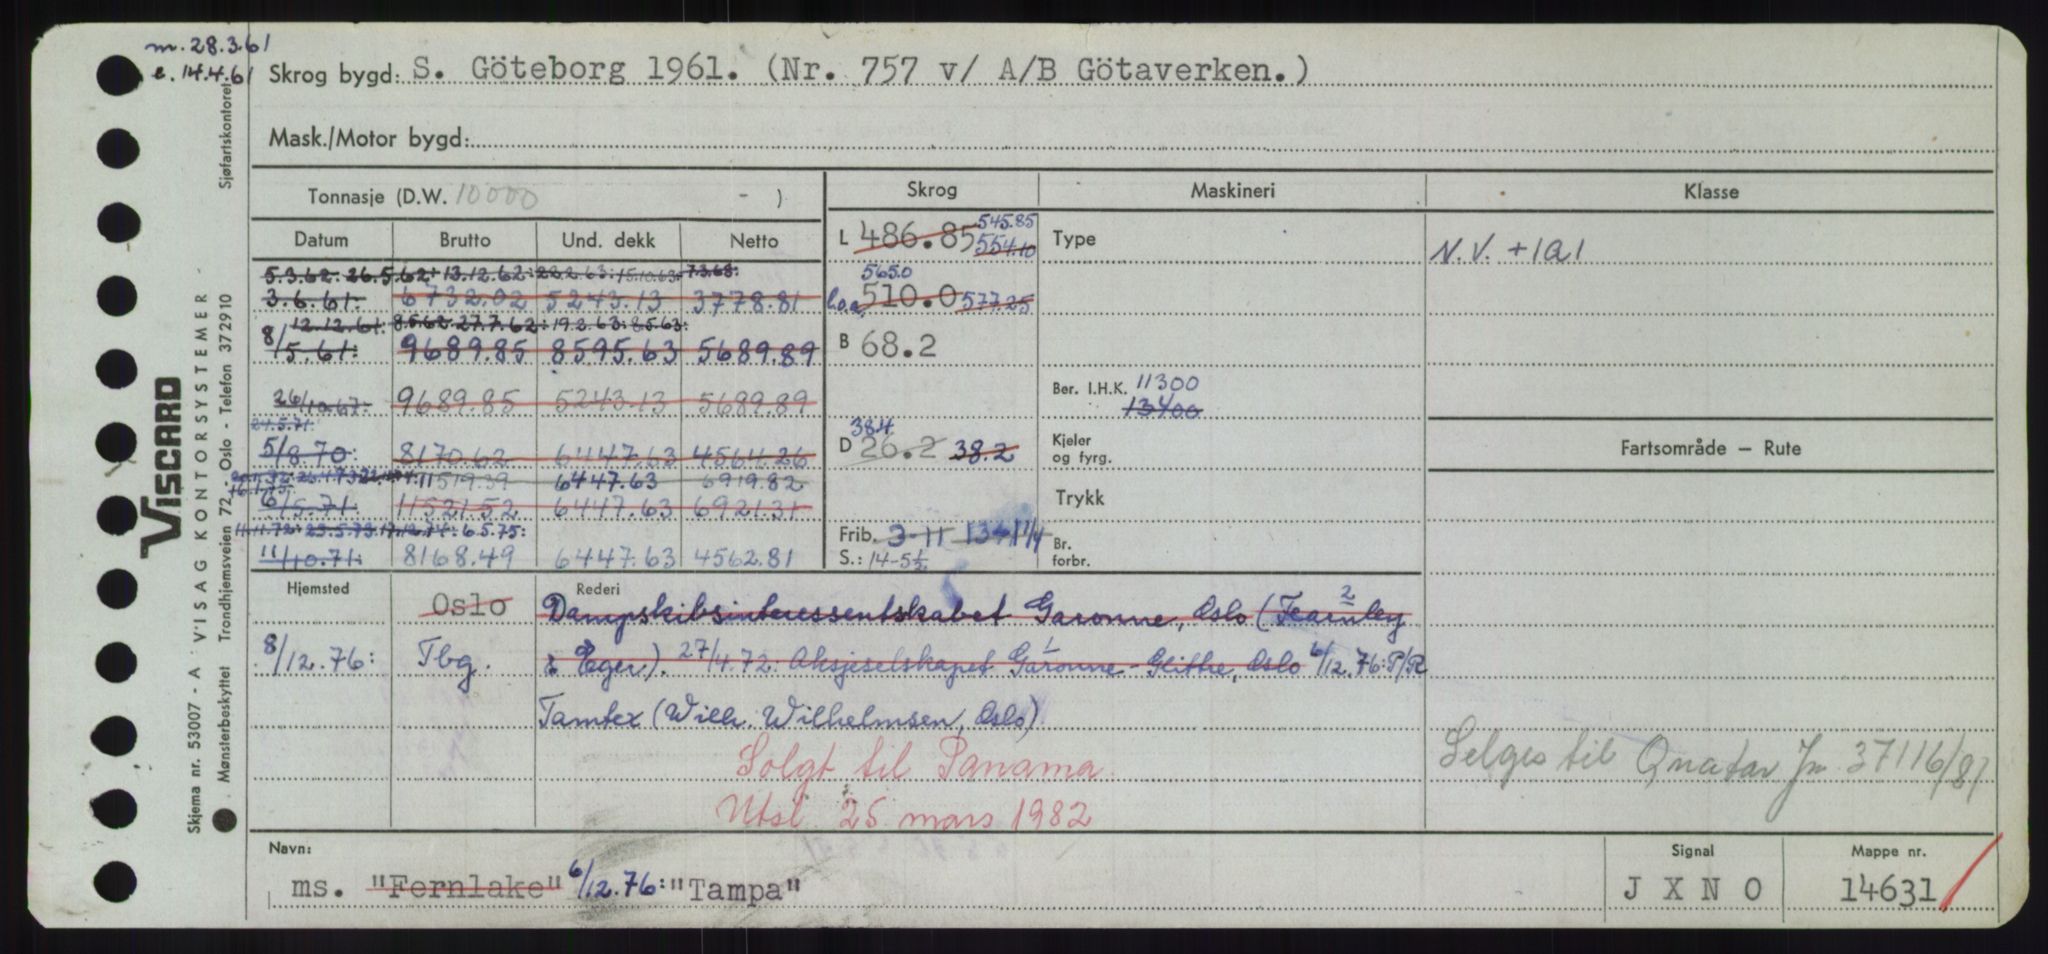 m. 28.3.61
e. 14.4.61
Skrog bygd: S. Göteborg 1961. (Nr. 757 v/ A/B Götaverken.)
Mask./Motor bygd:
Tonnasje (D.W. 10000 - )
Skrog Maskineri Klasse
Datum Brutto Und. dekk Netto
L 486.85 545.85 554.10
Type
N.V. +1A1
5.3.62. 26.5.62: 13.12.62: 22.2.63: 15.10.63: 7.3.68:
3.6.61: 6732.02 5243.13 3778.81
565.0
l.o.a. 510.0 577.25
12.12.61: 8.5.62. 27.7.62: 19.2.63: 8.5.63:
8/5.61: 9689.85 8595.63 5689.89
B 68.2
26/10.67: 9689.85 5243.13 5689.89
Ber. I.H.K. 11300
13400
24.5.71:
5/8.70: 8170.62 6447.63 4564.26
38.4
D 26.2 38.2
Kjeler og fyrg.
Fartsområde – Rute
11519.39 6447.63 6919.82
6/5.71: 11521.52 6447.63 6921.31
Trykk
11.11.72: 25.5.73. 17.12.74: 6.5.75:
11/10.71: 8168.49 6447.63 4562.81
Frib. 3-11 13-11¼
S.: 14-5½
Br. forbr.
Hjemsted Rederi
Oslo Dampskibsinteressentskabet Garonne, Oslo (Fearnley
8/12.76: Tbg. & Eger). 27/4.72: Aksjeselskapet Garonne-Glittre, Oslo 6/12.76: P/R
Tamtex (Wilh. Wilhelmsen, Oslo)
Solgt til Panama.
Utsl. 25. mars 1982
Selges til Quatar Jn. 37116/81
Navn: Signal Mappe nr.
ms. "Fernlake" 6/12.76: "Tampa" JXNO 14631
VISCARD
VISAG KONTORSYSTEMER
Skjema nr. 53007 - A
Mønsterbeskyttet Trondhjemsveien 72, Oslo - Telefon 372910
Sjøfartskontoret